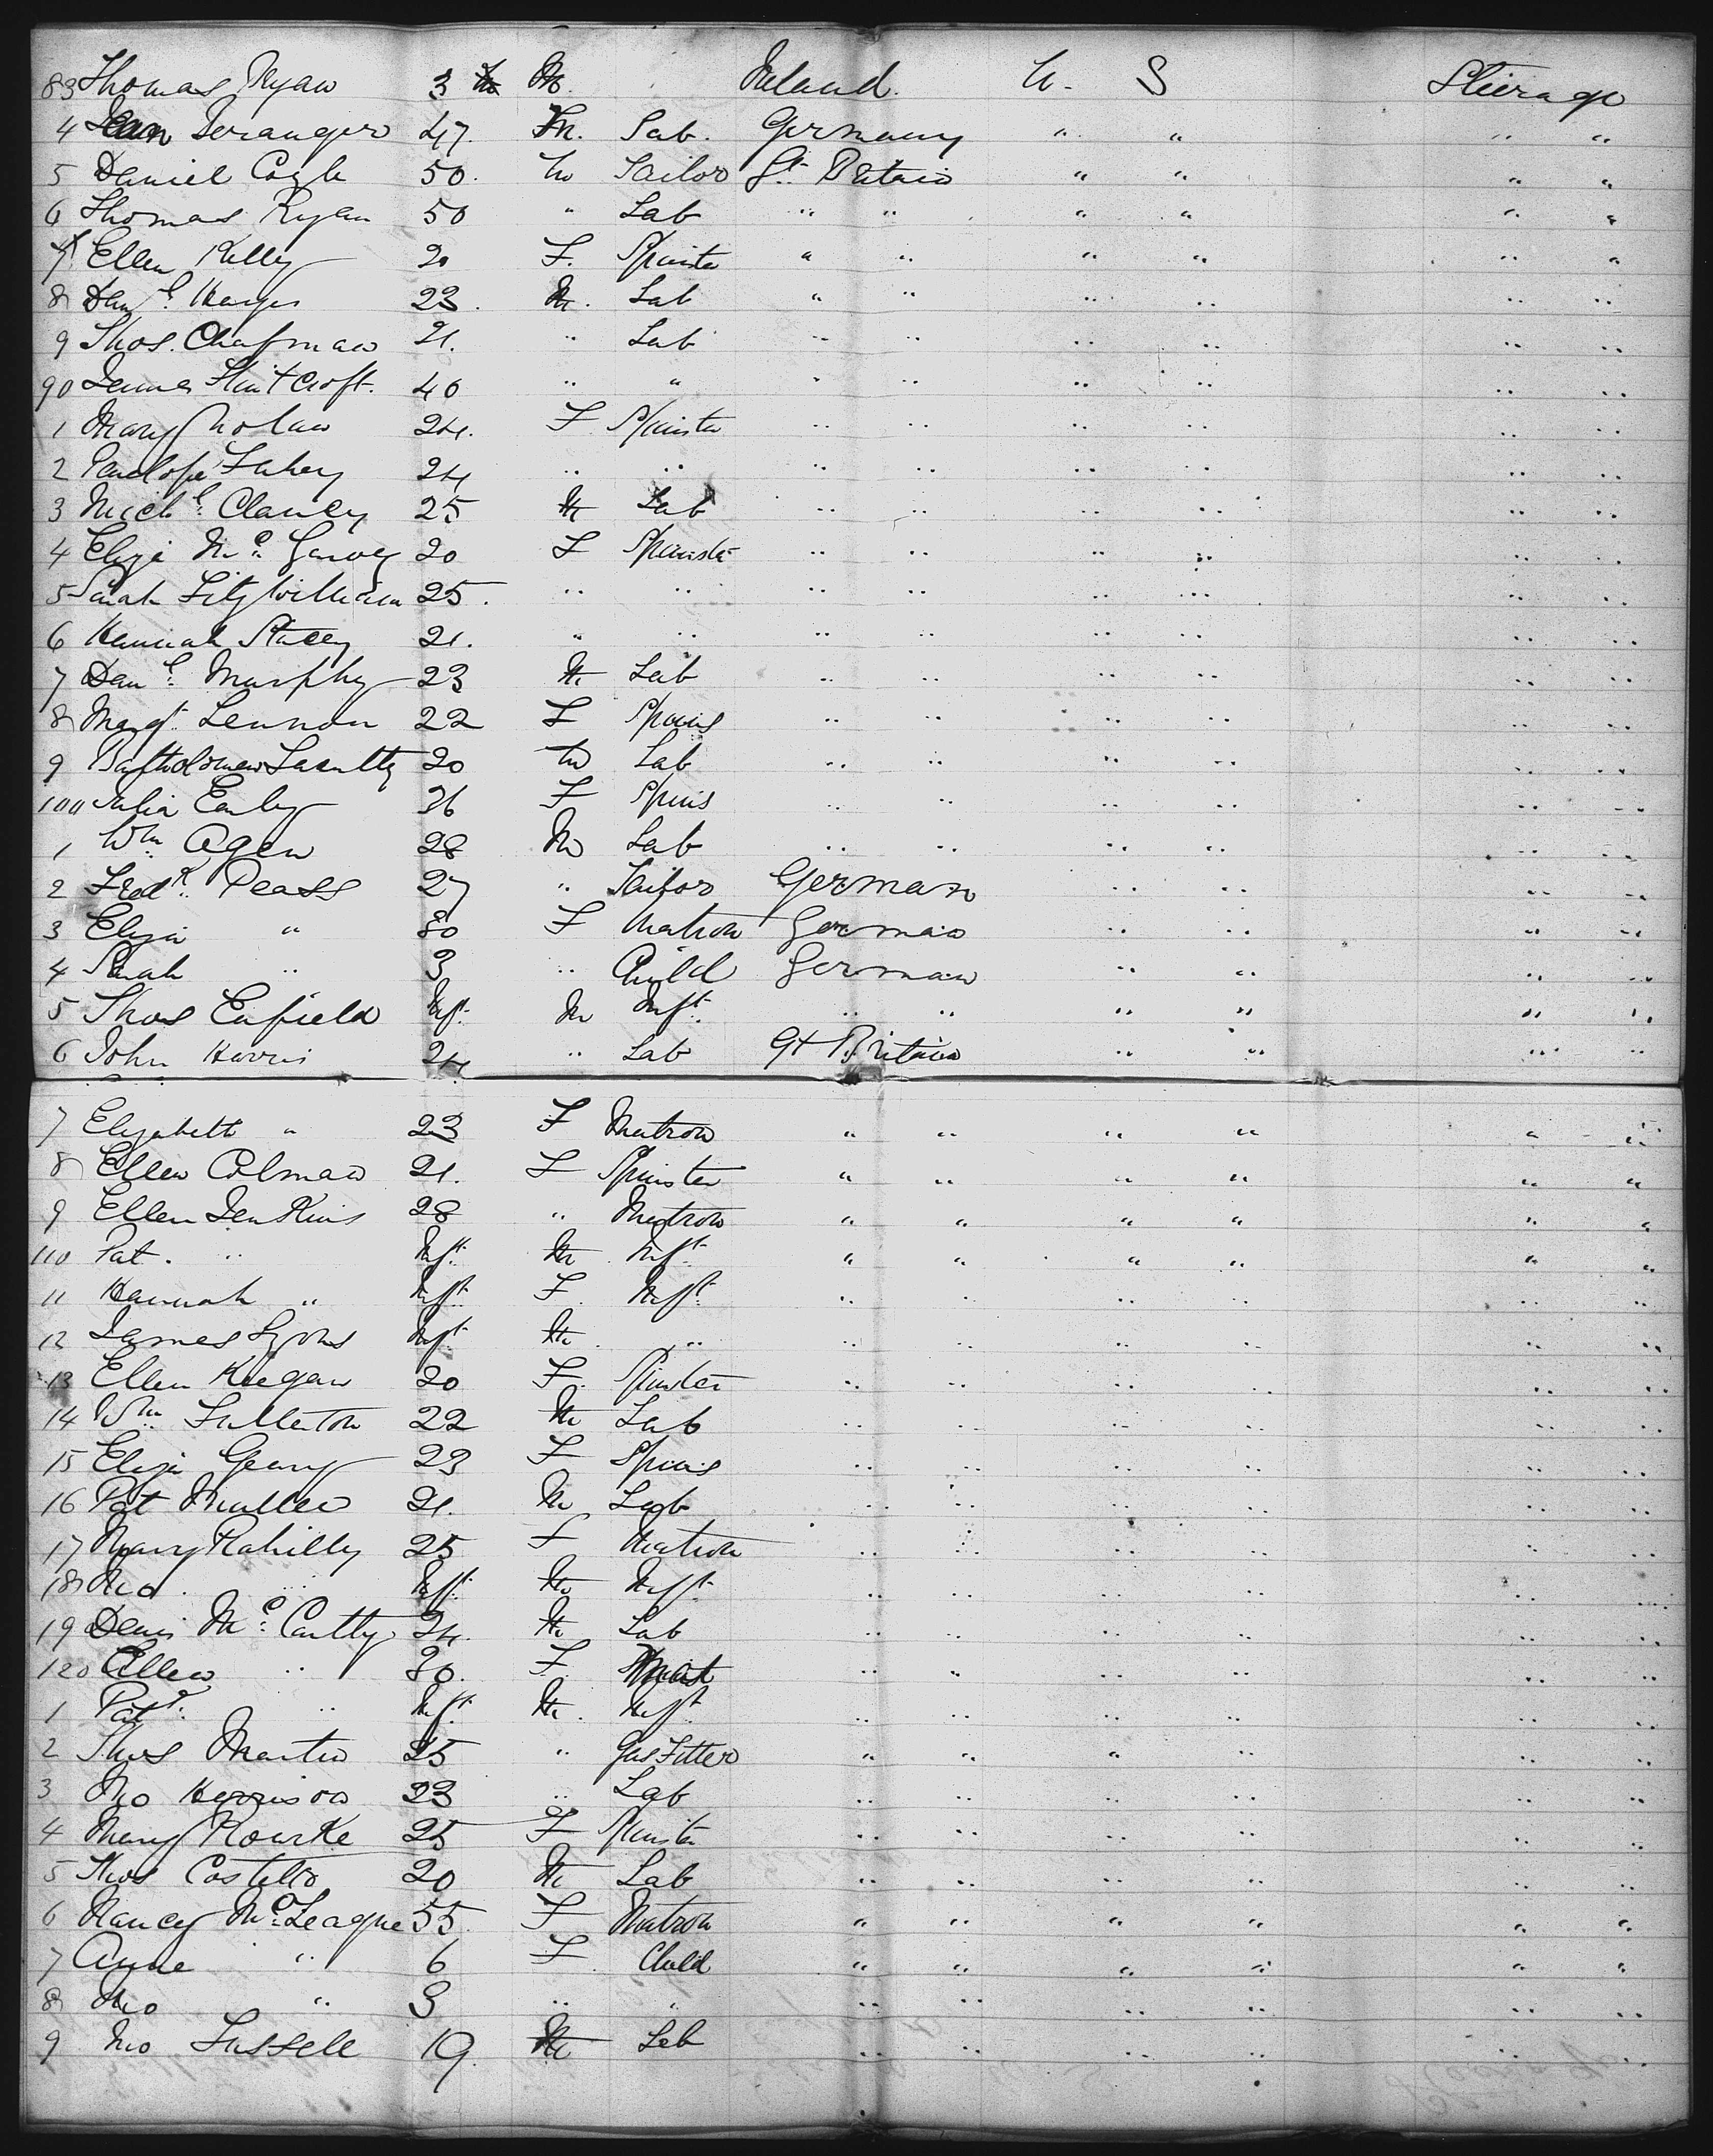 83 Thomas Ryan 3 M. Ireland. U. S Steerage
4 47. M. Lab. Germany " " " "
5 Daniel Coyle 50. M Tailor Gt. Britain " " " "
6 Thomas Ryan 50 " Lab " " " " " "
7 Ellen Kelly 20 F. Spinster " " " " " "
8 Danl. Hayes 23. M. Lab " " " " " "
9 Thos. Chapman 21. " Lab " " " " " "
90 James Flint Croft. 40 " " " " " " " "
1 Mary Nolan 24. F Spinster " " " " " "
2 Penelope Fahey 24 " " " " " " " "
3 Michl. Clancey 25 M Lab " " " " " "
4 Eliza Mc. Garvey 20 F Spinster " " " " " "
5 Sarah Fitz William 25. " " " " " " " "
6 Hannah Stacey 21. " " " " " " " "
7 Danl. Murphy 23 M Lab " " " " " "
8 Margt. Lennon 22 F Spins " " " " " "
9 Bartholomew 20 M Lab " " " " " "
100 Julia Early 26 F Spins " " " " " "
1 Wm. Agen 28 M Lab " " " " " "
2 Fredk. Peass 27 " Tailor German " " " "
3 Eliza " 30 F Matron German " " " "
4 Sarah " 3 " Child German " " " "
5 Thos Enfield Inft. M Inft. " " " " " "
6 John Harris 24 " Lab Gt Britain " " " "
7 Elizabeth " 23 F Matron " " " " " "
8 Ellen Colman 21. F Spinster " " " " " "
9 Ellen Jenkins 28 " Matron " " " " " "
110 Pat. " Inft. M Inft. " " " " " "
11 Hannah " Inft. F Inft. " " " " " "
12 James Lyons Inft. M " " " " " " "
13 Ellen Keegan 20 F. Spinster " " " " " "
14 Wm. Fullerton 22 M Lab " " " " " "
15 Eliza Geary 23 F Spins " " " " " "
16 Pat Mullen 21. M Lab " " " " " "
17 Mary Rahilly 25 F Matron " " " " " "
18 Jno. " Inft. M Inft " " " " " "
19 Denis Mc. Carthy 24. M Lab " " " " " "
120 Ellen " 30. F. " " " " " "
1 Patk. " Inft. M. Inft " " " " " "
2 Thos Martin 25 " Gas Fitter " " " " " "
3 Jno Harrison 23 " Lab " " " " " "
4 Mary Rourke 25 F Spinster " " " " " "
5 Thos Costello 20 M Lab " " " " " "
6 Nancy Mc. League 55. F Matron " " " " " "
7 Anne " 6 F. Child " " " " " "
8 Jno " 3 " " " " " " " "
9 Jno Fussell 19. M Lab " " " " " "